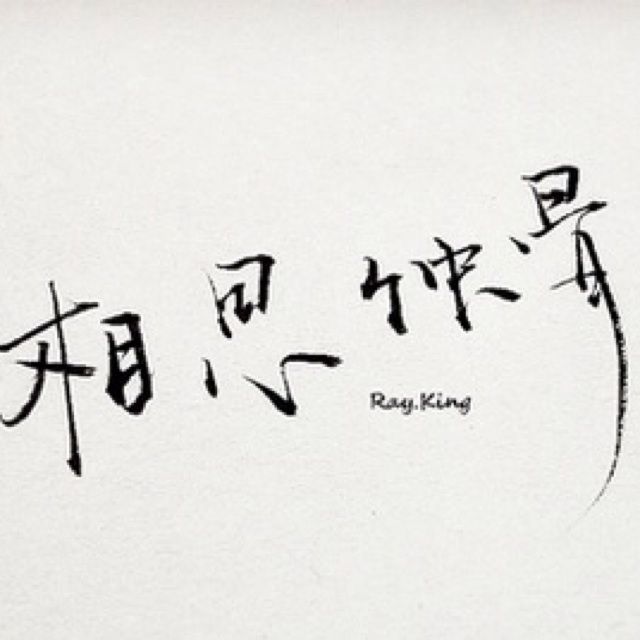 相思蚀骨
Ray.King